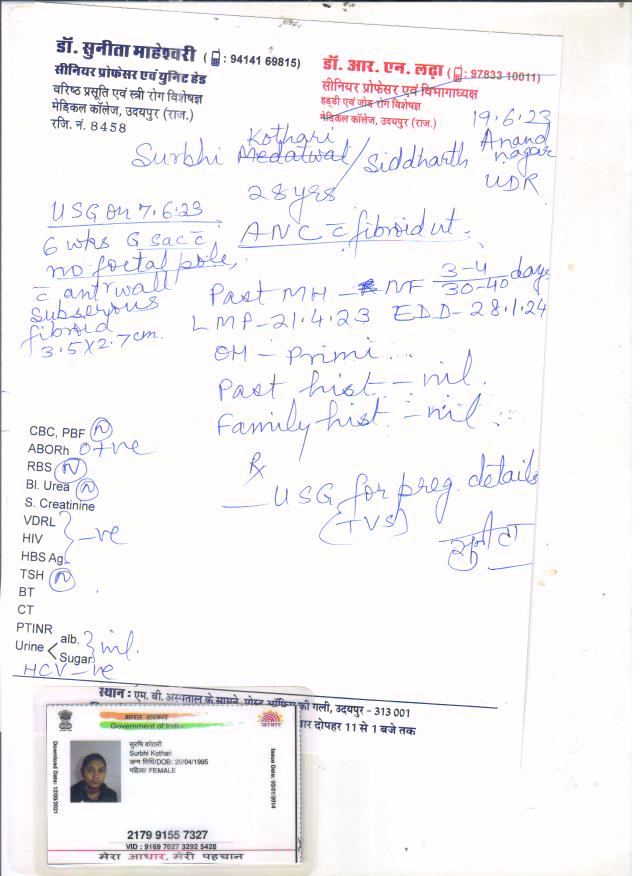 डॉ. सुनीता माहेश्वरी ( : 94141 69815)
सीनियर प्रोफेसर एवं यूनिट हेड
वरिष्ठ प्रसूति एवं स्त्री रोग विशेषज्ञ
मेडिकल कॉलेज, उदयपुर (राज.)
रजि. नं. 8458
डॉ. आर. एन. लढ़ा ( : 97833 10011)
सीनियर प्रोफेसर एवं विभागाध्यक्ष
हड्डी एवं जोड़ रोग विशेषज्ञ
मेडिकल कॉलेज, उदयपुर (राज.)
19.6.23
Kothari
Surbhi Medatwal / Siddharth
Anand
nagar
UDR
28 yrs
USG on 7.6.23
6 wks G sac c̄
no foetal pole,
c̄ ant r wall
subserous
fibroid
3.5 X 2.7 cm.
ANC c̄ fibroid ut.
Past MH - NF 3-4 / 30-40 days
LMP - 21.4.23 EDD - 28.1.24
OH - Primi
Past hist - nil.
Family hist. - nil
℞
USG for preg. details
(TVS)
सुनीता
CBC, PBF N
ABORh O+ve
RBS N
Bl. Urea N
S. Creatinine
VDRL
HIV -ve
HBS Ag
TSH N
BT
CT
PTINR
Urine alb. nil.
Sugar
HCV -ve
स्थान : एम. बी. अस्पताल के सामने, पोस्ट ऑफिस की गली, उदयपुर - 313 001
दोपहर 11 से 1 बजे तक
भारत सरकार
Government of India
आधार
Download Date: 12/05/2021
Issue Date: 03/01/2014
सुरभि कोठारी
Surbhi Kothari
जन्म तिथि/DOB: 20/04/1995
महिला/ FEMALE
2179 9155 7327
VID : 9169 7027 3292 5428
मेरा आधार, मेरी पहचान